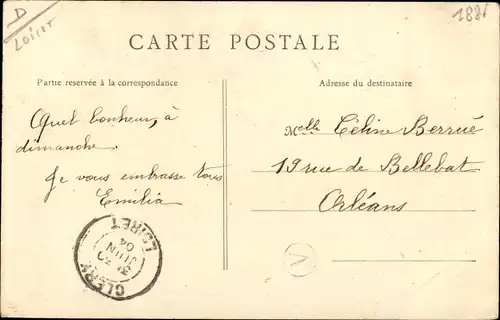 D
Loiret
CARTE POSTALE
Partie reservée à la correspondance
Adresse du destinataire
Quel bonheur, à
dimanche.
Je vous embrasse tous
Emilia
Melle Céline Berrué
19 rue de Bellebat
Orléans
CLERY
JUIN
04
LOIRET